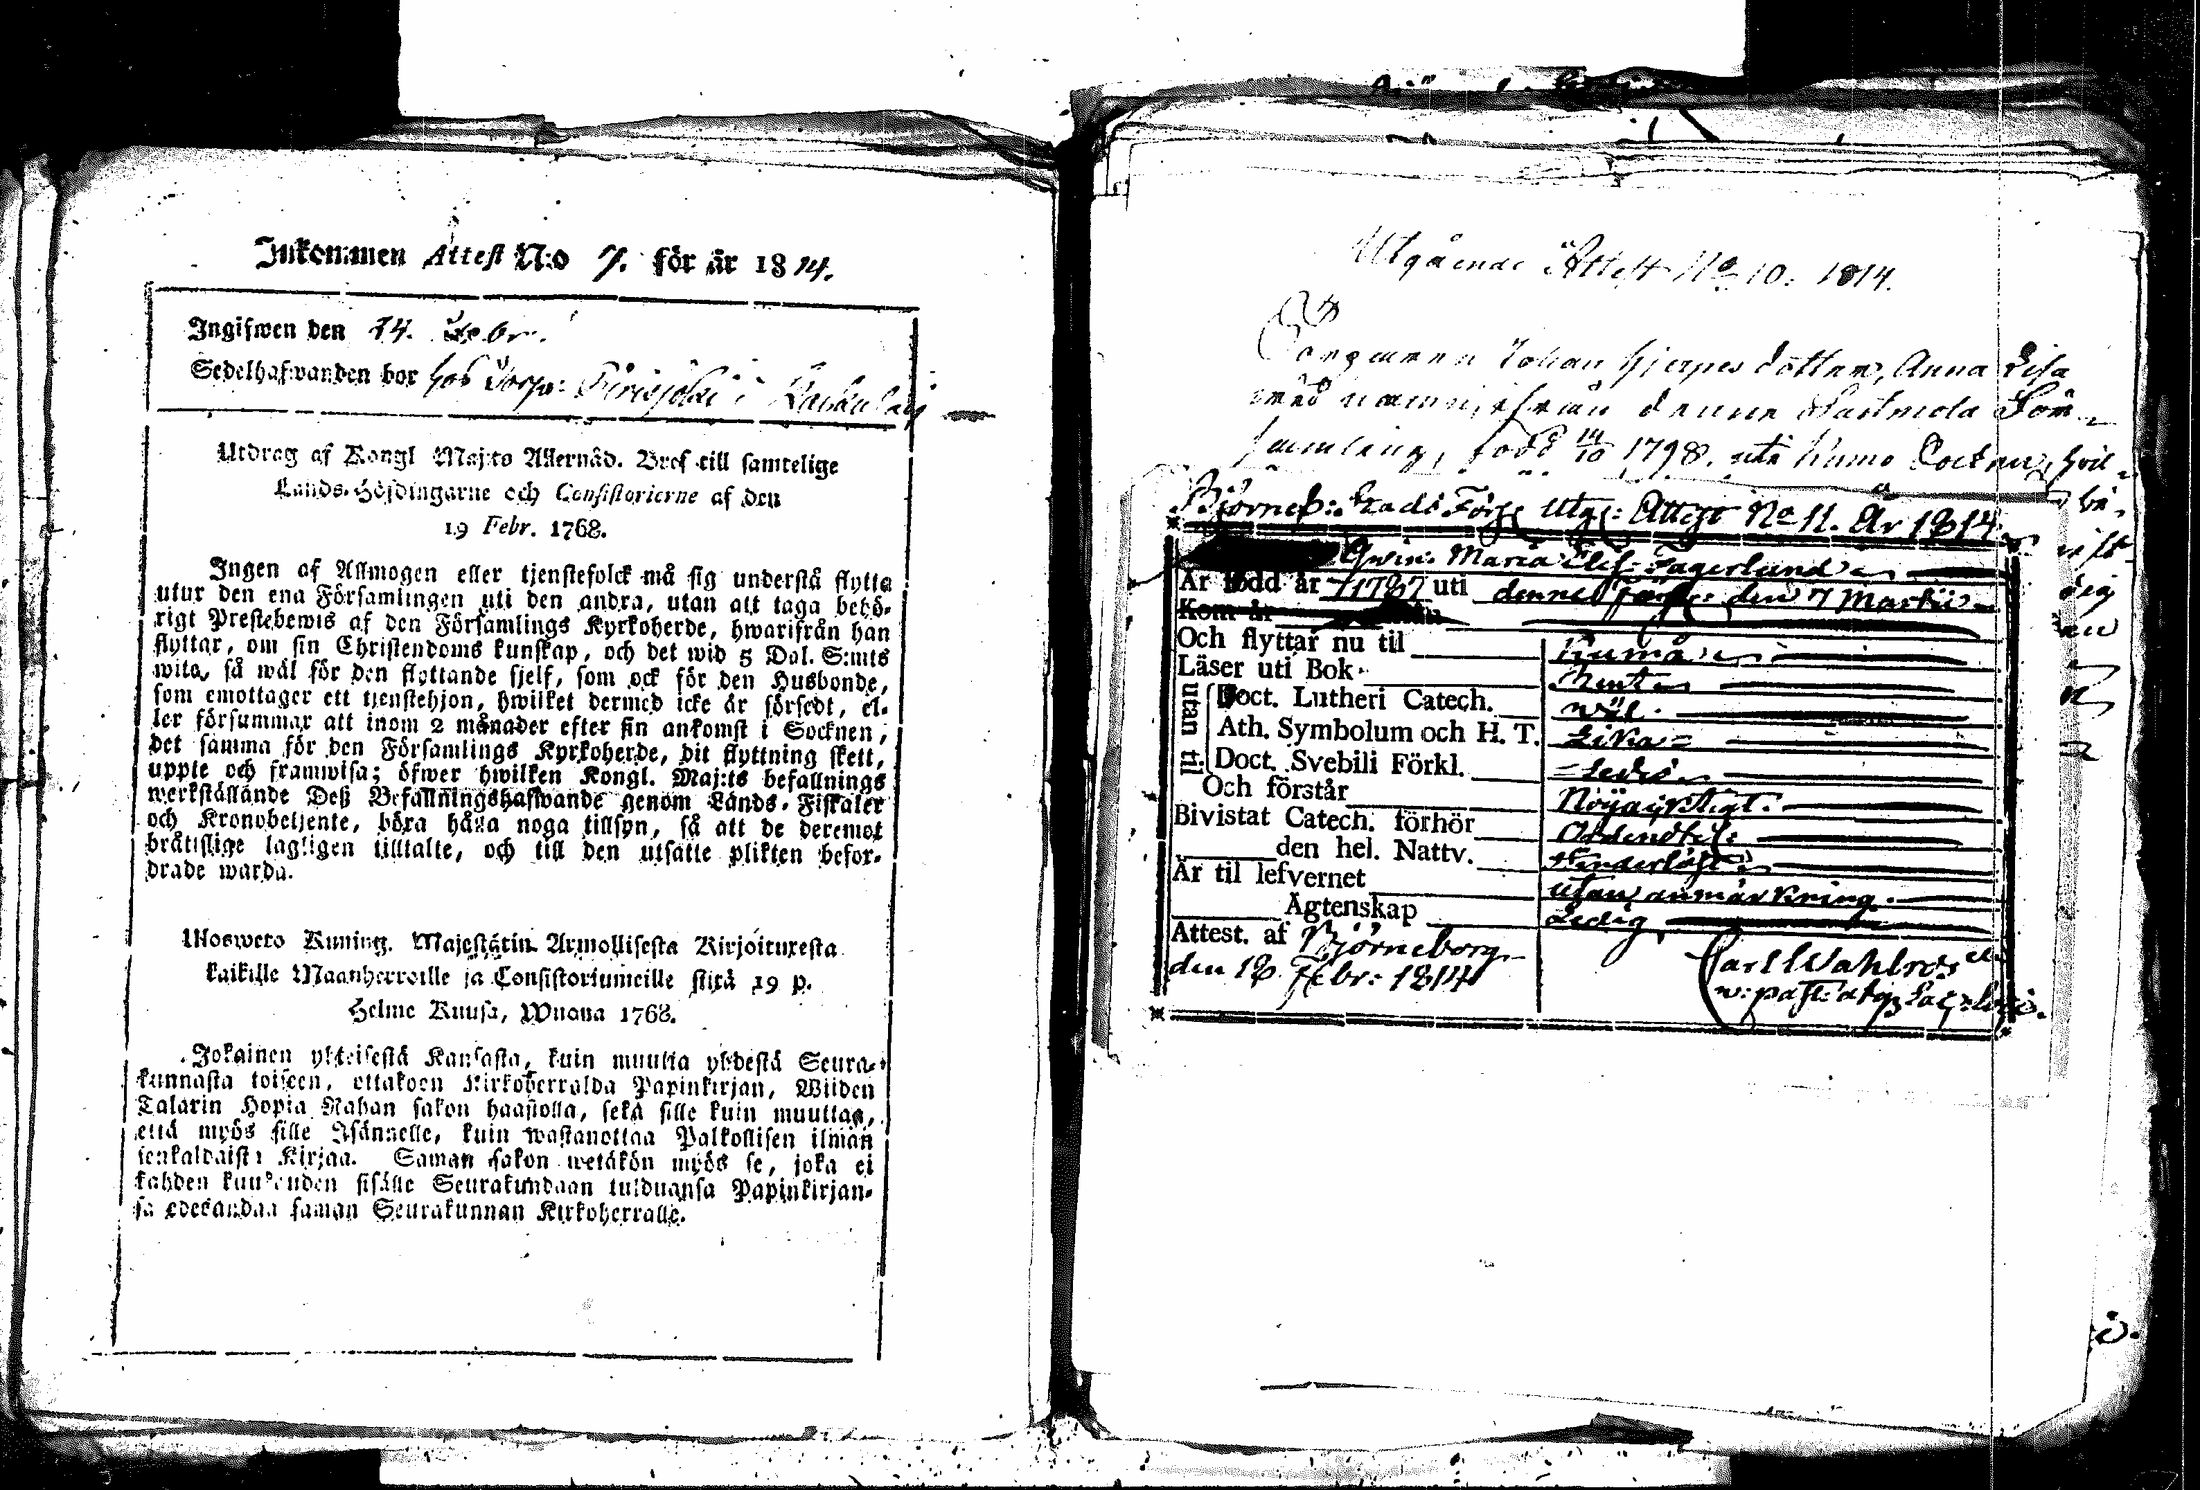 Inkommen Attest N:o 7. för år 1814.
Ingifwen den 24. Febr.
Sedelhafwanden bor hos Torp: i
Utdrag af Kongl Maj:ts Allernåd. Bref till samtelige
Lands-Höfdingarne och Consistorierne af den
19 Febr. 1768.
Ingen af Allmogen eller tjenstefolck må sig understå flytta
utur den ena Församlingen uti den andra, utan att taga behö-
rigt Prestebewis af den Församlings Kyrkoherde, hwarifrån han
flyttar, om sin Christendoms kunskap, och det wid 5 Dal. S:mts
wite, så wäl för den flyttande sjelf, som ock för den Husbonde,
som emottager ett tjenstehjon, hwilket dermed icke är försedt, el-
ler försummar att inom 2 månader efter sin ankomst i Socknen,
det samma för den Församlings Kyrkoherde, dit flyttning skett,
uppte och framwisa; öfwer hwilken Kongl. Maj:ts befallnings
werkställande Deß Befallningshafwande genom Lands-Fiskaler
och Kronobetjente, böra hålla noga tillsyn, så att de deremot
bråttslige lagligen tilltalte, och till den utsatte plikten befor-
drade warda.
Ulosweto Kuning. Majestätin Armollisesta Kirjoituxesta
kaikille Maanherroille ja Consistoriumeille siitä 19 p.
Helme Kuusa, Wuona 1768.
Jokainen yhteisestä Kansasta, kuin muutta yhdestä Seura-
kunnasta toiseen, ottakoen Kirkoherralda Papinkirjan, Wiiden
Talarin Hopia Rahan sakon haastolla, sekä sille kuin muuttaa,
että myös sille Isännelle, kuin wastanottaa Palkollisen ilman
senkaldaista Kirjaa. Saman sakon wetäkön myös se, joka ei
kahden kuukauden sisälle Seurakundaan tulduansa Papinkirjan-
sa edesandaa saman Seurakunnan Kirkoherralle.
Utgående Attest No 10: 1814.
Johan Hjerpes dotter, Anna Lisa
med namn, ifrån denne Lastmola För-
samling, född 14/10 1798. uti Kumo Socken, hvil-
Björneb: Stads Förs: Utg: Attest No 11. År 1814.
Qvin: Maria Elis: Fagerlund
Är född år 1787 uti denne Förs: den 7 Martii
Kom år
Och flyttar nu til Kumå
Läser uti Bok rent
utan til
Doct. Lutheri Catech. wäl
Ath. Symbolum och H. T. Lika
Doct. Svebili Förkl. Ledes
Och förstår Nöjagktigt
Bivistat Catech. förhör Ordentel:
den hel. Nattv. Sinderlöst
Är til lefvernet utan anmärkning
Ägtenskap Ledig
Attest. af Björneborg
den 18 Febr: 1814
Carl Wahlroos